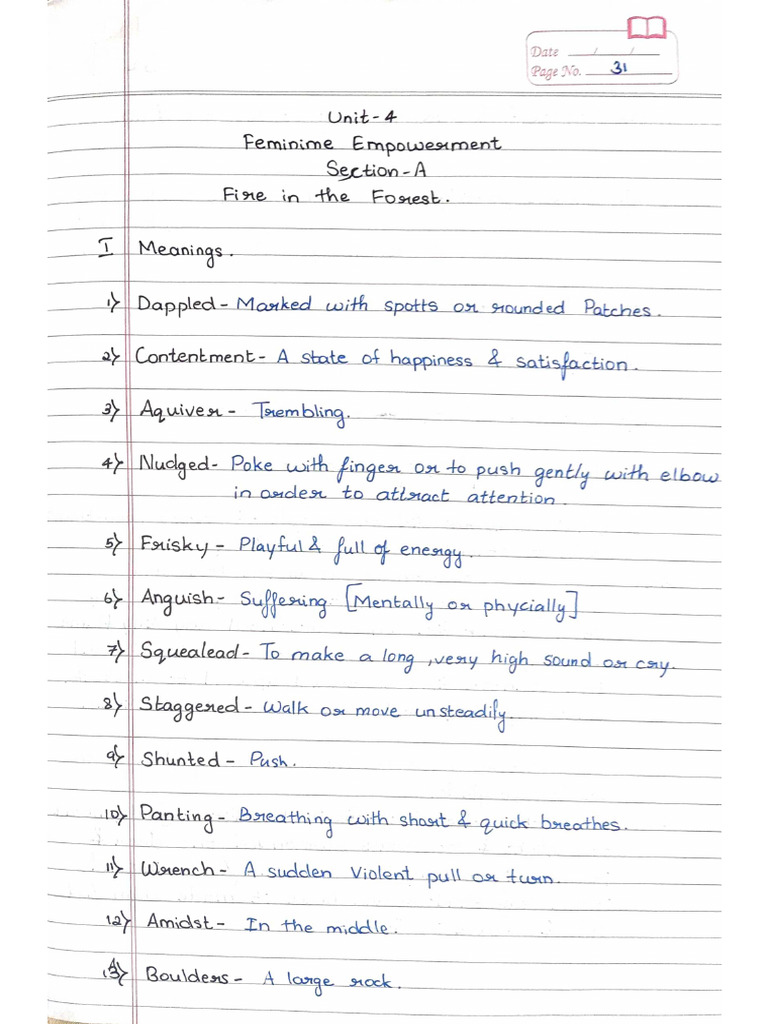 Date / /
Page No. 31
Unit-4
Feminime Empowerment
Section-A
Fire in the Forest.
I Meanings.
1) Dappled - Marked with spotts or rounded Patches.
2) Contentment - A state of happiness & satisfaction.
3) Aquiver - Trembling.
4) Nudged - Poke with finger or to push gently with elbow
in order to attract attention.
5) Frisky - Playful & full of energy.
6) Anguish - Suffering [Mentally or phycially]
7) Squealead - To make a long, very high sound or cry.
8) Staggered - Walk or move unsteadily.
9) Shunted - Push.
10) Panting - Breathing with short & quick breathes.
11) Wrench - A sudden Violent pull or turn.
12) Amidst - In the middle.
13) Boulders - A large rock.